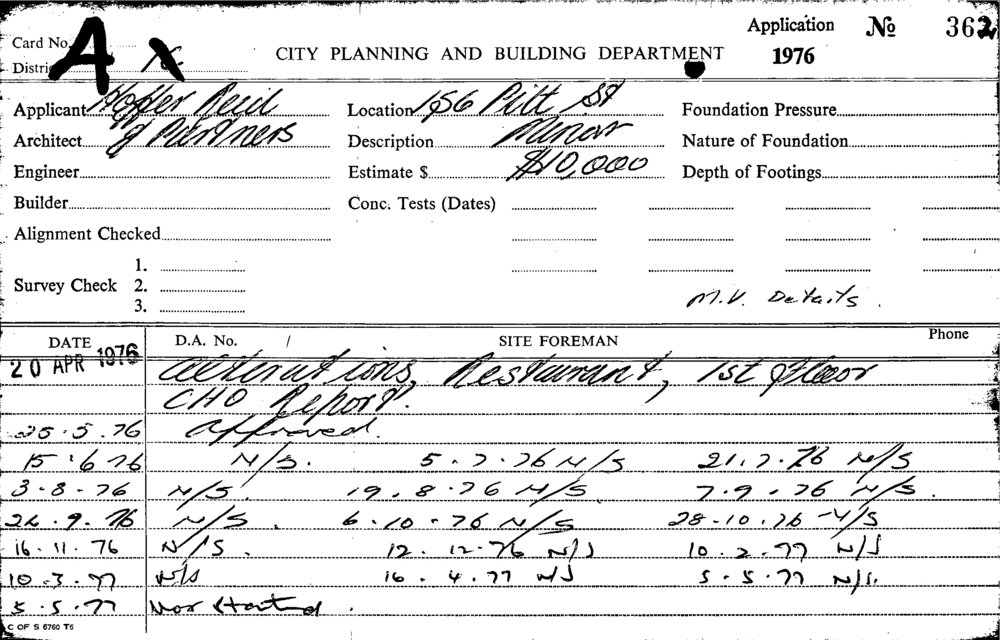 Card No. A
District X
CITY PLANNING AND BUILDING DEPARTMENT
Application No 362
1976
Applicant Hoffer Reid Location 156 Pitt St Foundation Pressure
Architect & Partners Description Minor Nature of Foundation
Engineer Estimate $ $10,000 Depth of Footings
Builder Conc. Tests (Dates)
Alignment Checked
1.
Survey Check 2.
3.
M.V. Details.
DATE D.A. No. / SITE FOREMAN Phone
20 APR 1976 Alterations, Restaurant, 1st floor
CHO Report.
25.5.76 Approved.
15.6.76 N/S. 5.7.76 N/S 21.7.76 N/S
3.8.76 N/S. 19.8.76 N/S 7.9.76 N/S.
22.9.76 N/S. 6.10.76 N/S 28-10.76 N/S
16.11.76 N/S. 12.12.76 N/S 10.2.77 N/S
10.3.77 N/S 16.4.77 N/S 5.5.77 N/S.
5.5.77 Not Started.
C OF S 6760 T6